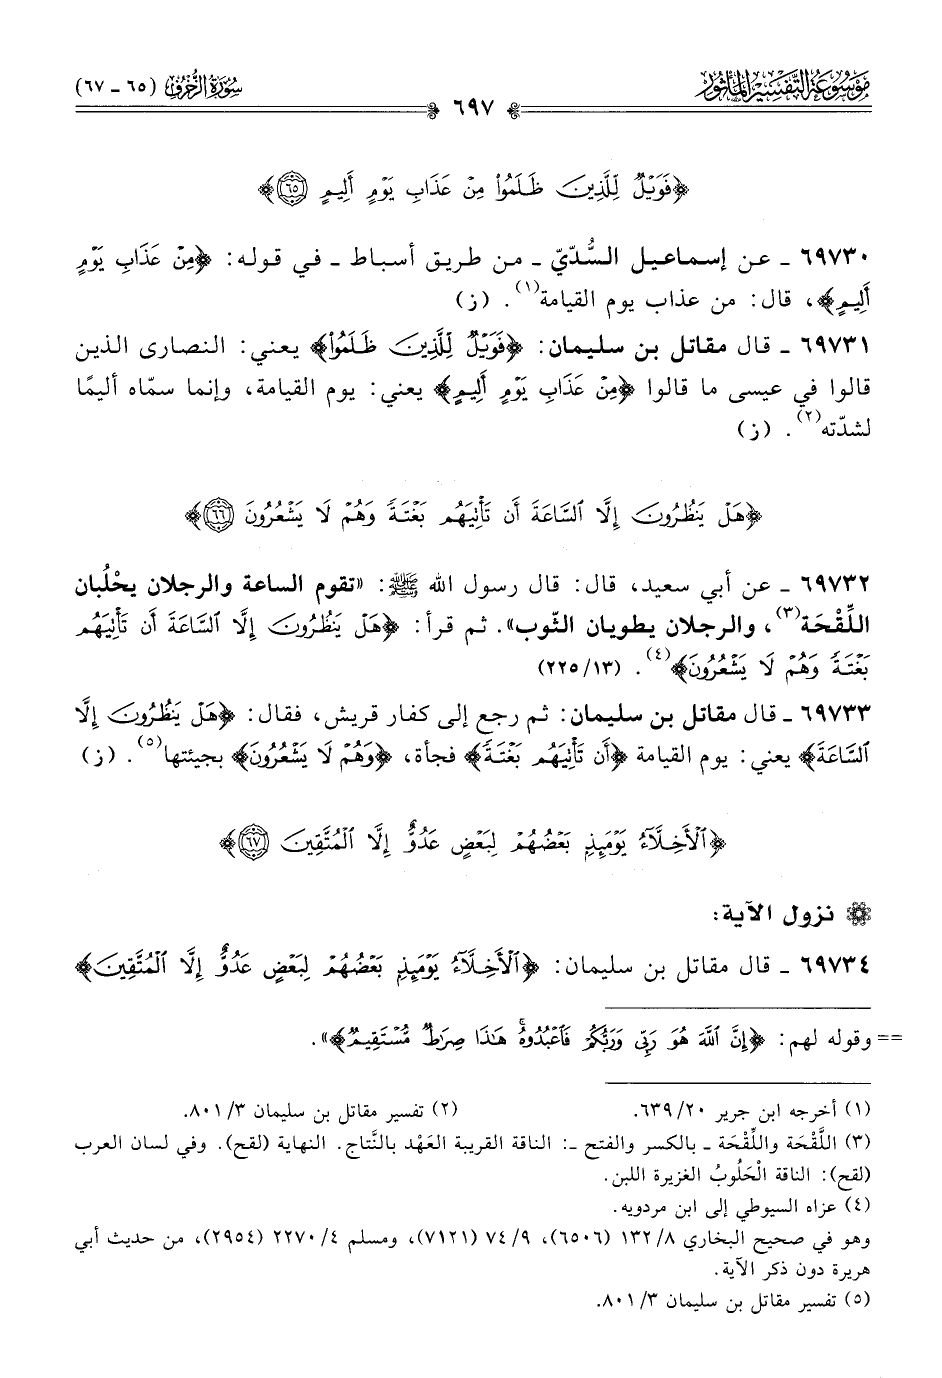 موسوعة التفسير المأثور
سورة الزخرف (٦٥ - ٦٧)
٦٩٧
﴿فَوَيْلٌ لِّلَّذِينَ ظَلَمُوا۟ مِنْ عَذَابِ يَوْمٍ أَلِيمٍ ٦٥﴾
٦٩٧٣٠ - عن إسماعيل السُّدّيّ - من طريق أسباط - في قوله: ﴿مِنْ عَذَابِ يَوْمٍ
أَلِيمٍ﴾، قال: من عذاب يوم القيامة(١). (ز)
٦٩٧٣١ - قال مقاتل بن سليمان: ﴿فَوَيْلٌ لِّلَّذِينَ ظَلَمُوا۟﴾ يعني: النصارى الذين
قالوا في عيسى ما قالوا ﴿مِنْ عَذَابِ يَوْمٍ أَلِيمٍ﴾ يعني: يوم القيامة، وإنما سمّاه أليمًا
لشدّته(٢). (ز)
﴿هَلْ يَنظُرُونَ إِلَّا ٱلسَّاعَةَ أَن تَأْتِيَهُم بَغْتَةً وَهُمْ لَا يَشْعُرُونَ ٦٦﴾
٦٩٧٣٢ - عن أبي سعيد، قال: قال رسول الله ﷺ: «تقوم الساعة والرجلان يحْلُبان
اللِّقْحَة(٣)، والرجلان يطويان الثّوب». ثم قرأ: ﴿هَلْ يَنظُرُونَ إِلَّا ٱلسَّاعَةَ أَن تَأْتِيَهُم
بَغْتَةً وَهُمْ لَا يَشْعُرُونَ﴾(٤). (١٣/ ٢٢٥)
٦٩٧٣٣ - قال مقاتل بن سليمان: ثم رجع إلى كفار قريش، فقال: ﴿هَلْ يَنظُرُونَ إِلَّا
ٱلسَّاعَةَ﴾ يعني: يوم القيامة ﴿أَن تَأْتِيَهُم بَغْتَةً﴾ فجأة، ﴿وَهُمْ لَا يَشْعُرُونَ﴾ بجيئتها(٥). (ز)
﴿ٱلْأَخِلَّآءُ يَوْمَئِذٍۭ بَعْضُهُمْ لِبَعْضٍ عَدُوٌّ إِلَّا ٱلْمُتَّقِينَ ٦٧﴾
نزول الآية:
٦٩٧٣٤ - قال مقاتل بن سليمان: ﴿ٱلْأَخِلَّآءُ يَوْمَئِذٍۭ بَعْضُهُمْ لِبَعْضٍ عَدُوٌّ إِلَّا ٱلْمُتَّقِينَ﴾
== وقوله لهم: ﴿إِنَّ ٱللَّهَ هُوَ رَبِّى وَرَبُّكُمْ فَٱعْبُدُوهُ هَٰذَا صِرَٰطٌ مُّسْتَقِيمٌ﴾».
(١) أخرجه ابن جرير ٢٠/ ٦٣٩. (٢) تفسير مقاتل بن سليمان ٣/ ٨٠١.
(٣) اللَّقْحَة واللِّقْحَة - بالكسر والفتح -: الناقة القريبة العَهْد بالنَّتاج. النهاية (لقح). وفي لسان العرب
(لقح): الناقة الْحَلُوبُ الغزيرة اللبن.
(٤) عزاه السيوطي إلى ابن مردويه.
وهو في صحيح البخاري ٨/ ١٣٢ (٦٥٠٦)، ٩/ ٧٤ (٧١٢١)، ومسلم ٤/ ٢٢٧٠ (٢٩٥٤)، من حديث أبي
هريرة دون ذكر الآية.
(٥) تفسير مقاتل بن سليمان ٣/ ٨٠١.